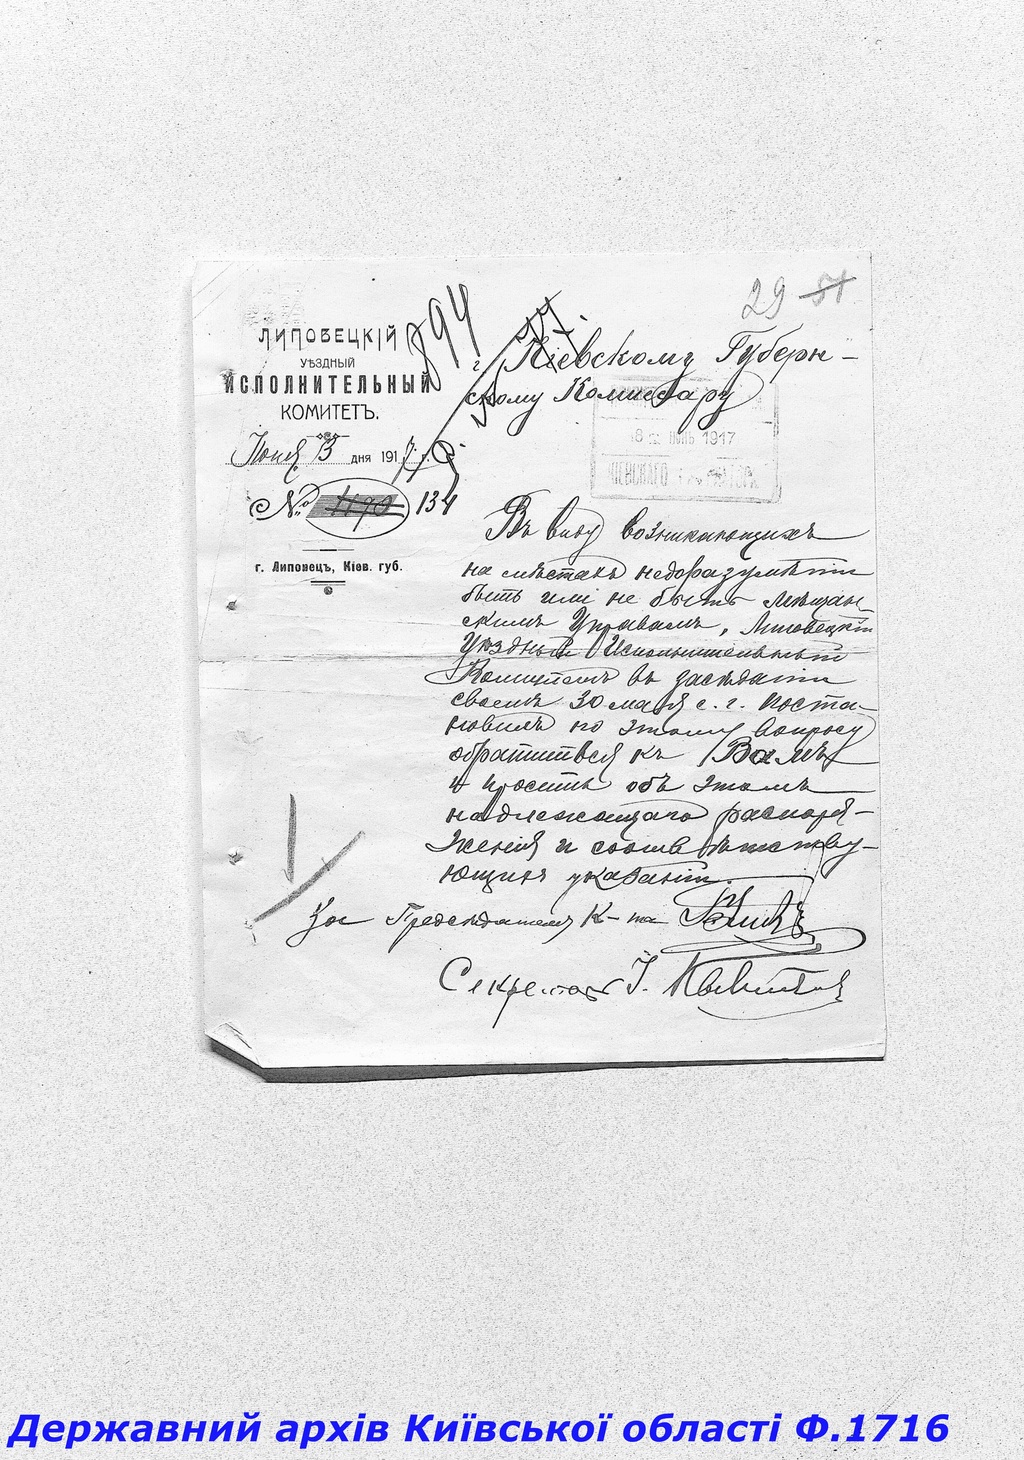 29 51
894
ЛИПОВЕЦКІЙ
УѢЗДНЫЙ
ИСПОЛНИТЕЛЬНЫЙ
КОМИТЕТЪ.
Іюня 13 дня 1917 г.
№ 1190 134
г. Липовецъ, Кіев. губ.
г. Кіевскому Губерн-
скому Комиссару
1917
КІЕВСКАГО
Въ виду возникающихъ
на мѣстахъ недоразумѣній
быть или не быть Мѣщан-
скимъ Управамъ, Липовецкій
Уѣздный Исполнительный
Комитетъ въ засѣданіи
своемъ 30 мая с. г. поста-
новилъ по этому вопросу
обратиться къ Вамъ
и просить объ этомъ
надлежащаго распоря-
женія и соотвѣтству-
ющихъ указаній.
За Предсѣдателя К-та
Секретарь
Державний архів Київської області Ф.1716